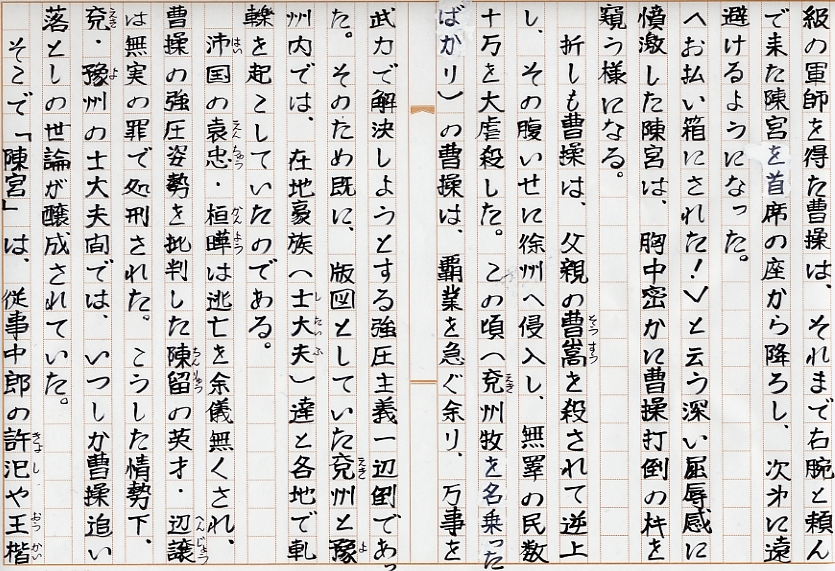 級の軍師を得た曹操は、それまで右腕と頼ん
で来た陳宮を首席の座から降ろし、次㐧に遠
避けるようになった。
へお払い箱にされた！〉と云う深い屈辱感に
憤激した陳宮は、胸中密かに曹操打倒の杵を
窺う様になる。
折しも曹操は、父親の曹嵩を殺されて逆上
そうすう
し、その腹いせに徐州へ侵入し、無辜の民数
十万を大虐殺した。この頃（兗州牧を名乗った
えき
ばかり）の曹操は、覇業を急ぐ余り、万事を
武力で解決しようとする強圧主義一辺倒であっ
た。そのため既に、版図としていた兗州と豫
えき
よ
州内では、在地豪族（士大夫）達と各地で軋
したいふ
轢を起こしていたのである。
沛国の袁忠・桓曄は逃亡を余儀無くされ、
はい
えんちゅう
かんよう
曹操の強圧姿勢を批判した陳留の英才・辺譲
ちんりゅう
へんじょう
は無実の罪で処刑された。こうした情勢下、
兗・豫州の士大夫間では、いつしか曹操追い
えき
よ
落としの世論が醸成されていた。
そこで「陳宮」は、従事中郎の許汜や王楷
きょし
おうかい